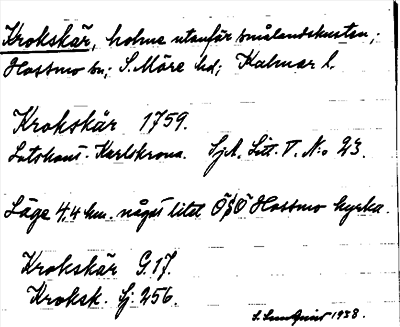 Krokskär, holme utanför smålandskusten;
Hossmo sn; S. Möre hd; Kalmar l.
Krokskär 1759.
Lotskont. Karlskrona. Spt. Litt. V. No 23.
Läge 4,4 km. något litet ÖSÖ Hossmo kyrka.
Krokskär G. 17.
Kroksk. Sj. 256.
1938.